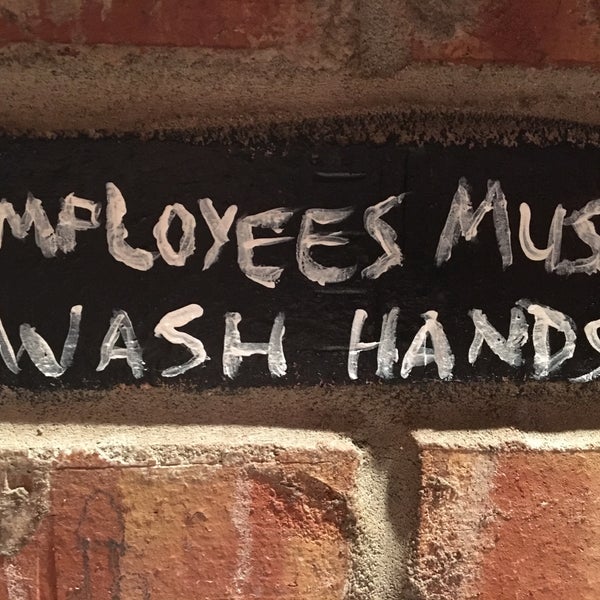 EMPLOYEES MUS
WASH HANDS